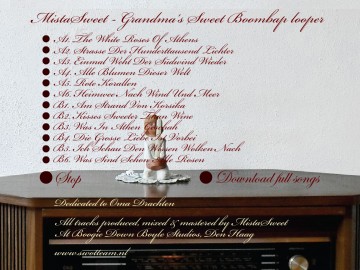 MistaSweet - Grandma's Sweet Boombap looper
A1. The White Roses Of Athens
A2. Strasse Der Hunderttausend Lichter
A3. Einmal Weht Der Südwind Wieder
A4. Alle Blumen Dieser Welt
A5. Rote Korallen
A6. Heimweh Nach Wind Und Meer
B1. Am Strand Von Korsika
B2. Kisses Sweeter Than Wine
B3. Was In Athen
B4. Die Grosse Liebe Vorbei
B5. Ich Schau Den Weissen Wolken Nach
B6. Was Sind Schon Alle Rosen
Stop
Download full songs
Dedicated to Oma Drachten
All tracks produced, mixed & mastered by MistaSweet
At Boogie Down Boyle Studios, Den Haag
www.swetteam.nl